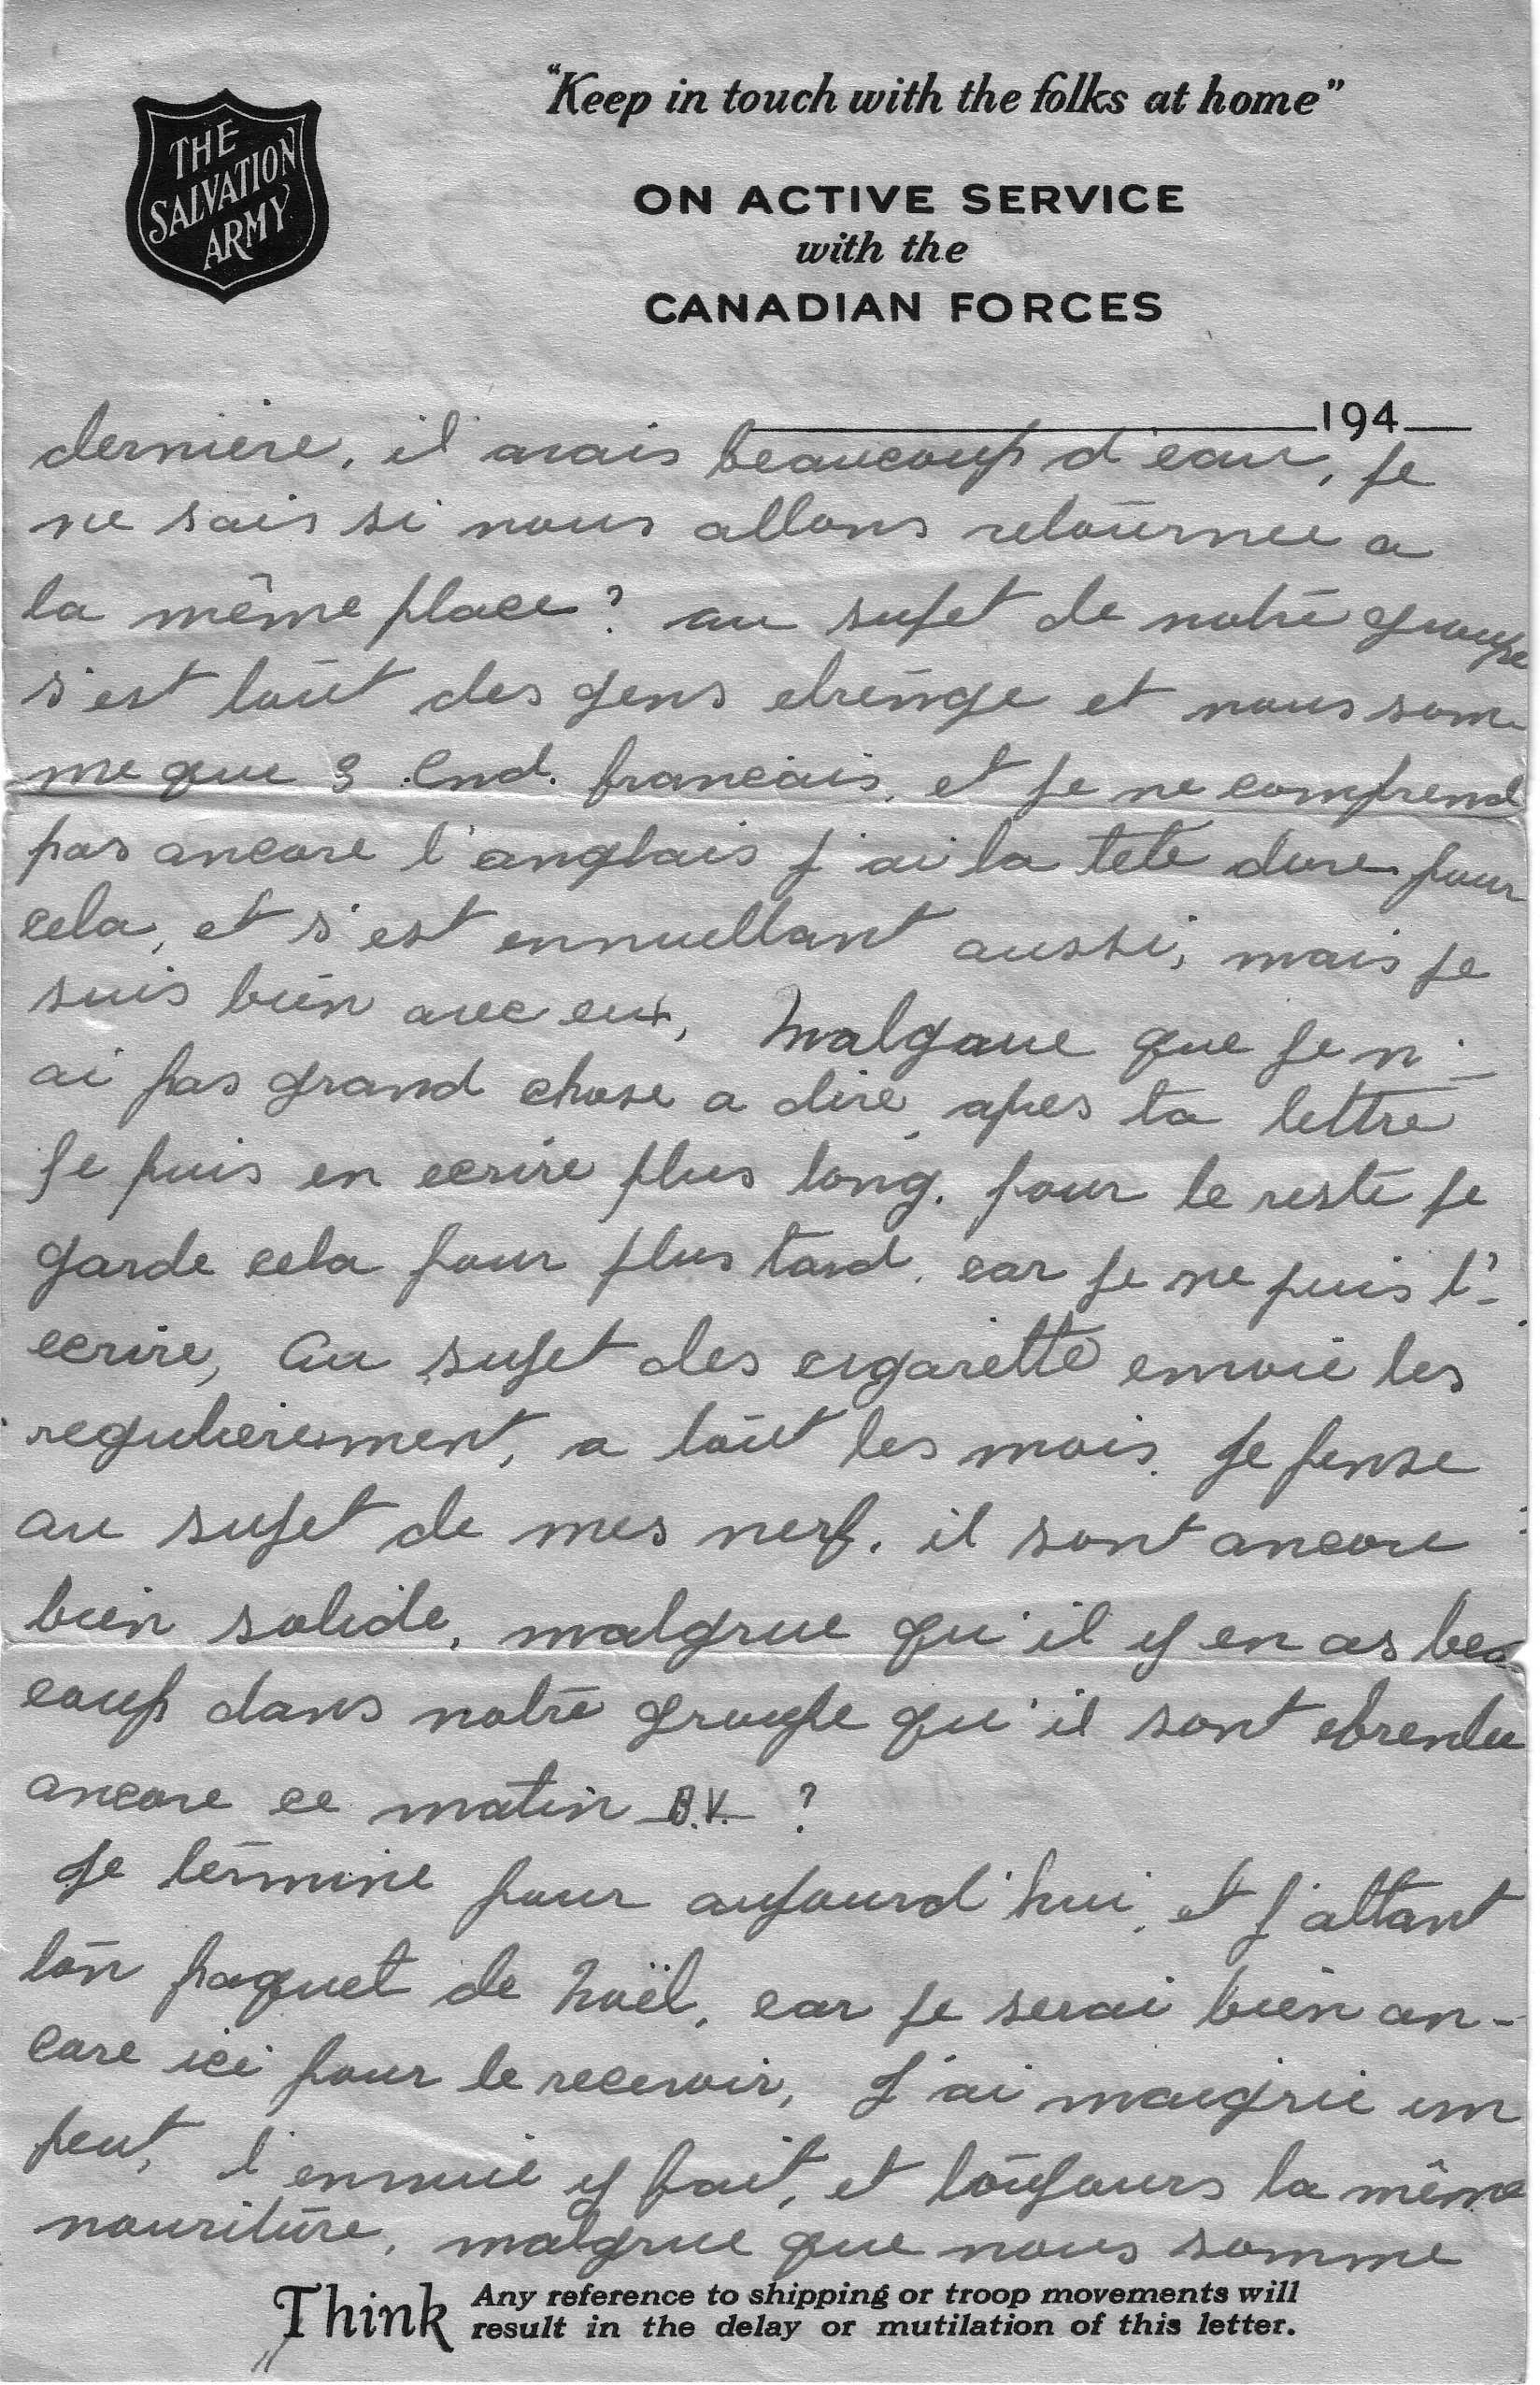 THE
SALVATION
ARMY
"Keep in touch with the folks at home"
ON ACTIVE SERVICE
with the
CANADIAN FORCES
194
derniere, il avais beaucoup d'eau, je
ne sais si nous allons retournee a
la même place? au sujet de notre groupe
s'est tout des gens etrenge et nous som-
me que 3 Cnd. francais, et je ne comprend
pas ancore l'anglais j'ai la tete dure pour
cela, et s'est ennuellant aussi, mais je
suis bien avec eux, Malgaue que je n'-
ai pas grand chose a dire, apres ta lettre
je puis en ecrire plus long. pour le reste je
garde cela pour plus tard, car je ne puis l'-
ecrire, Au sujet des cigarette envoie les
regulierement, a tout les mois. je pense
au sujet de mes nerf. il sont ancore
bien solide, malgrue qu'il y en as beau
coup dans notre groupe qu'il sont ebrenlee
ancore ce matin B.V. ?
Je termine pour aujourd'hui, et j'attant
ton paquet de Noël, car je serai bien an-
core ici pour le recevoir, J'ai maigrie un
peut, l'ennuie y fait, et toujours la même
nouriture, malgrue que nous somme
Think Any reference to shipping or troop movements will
result in the delay or mutilation of this letter.